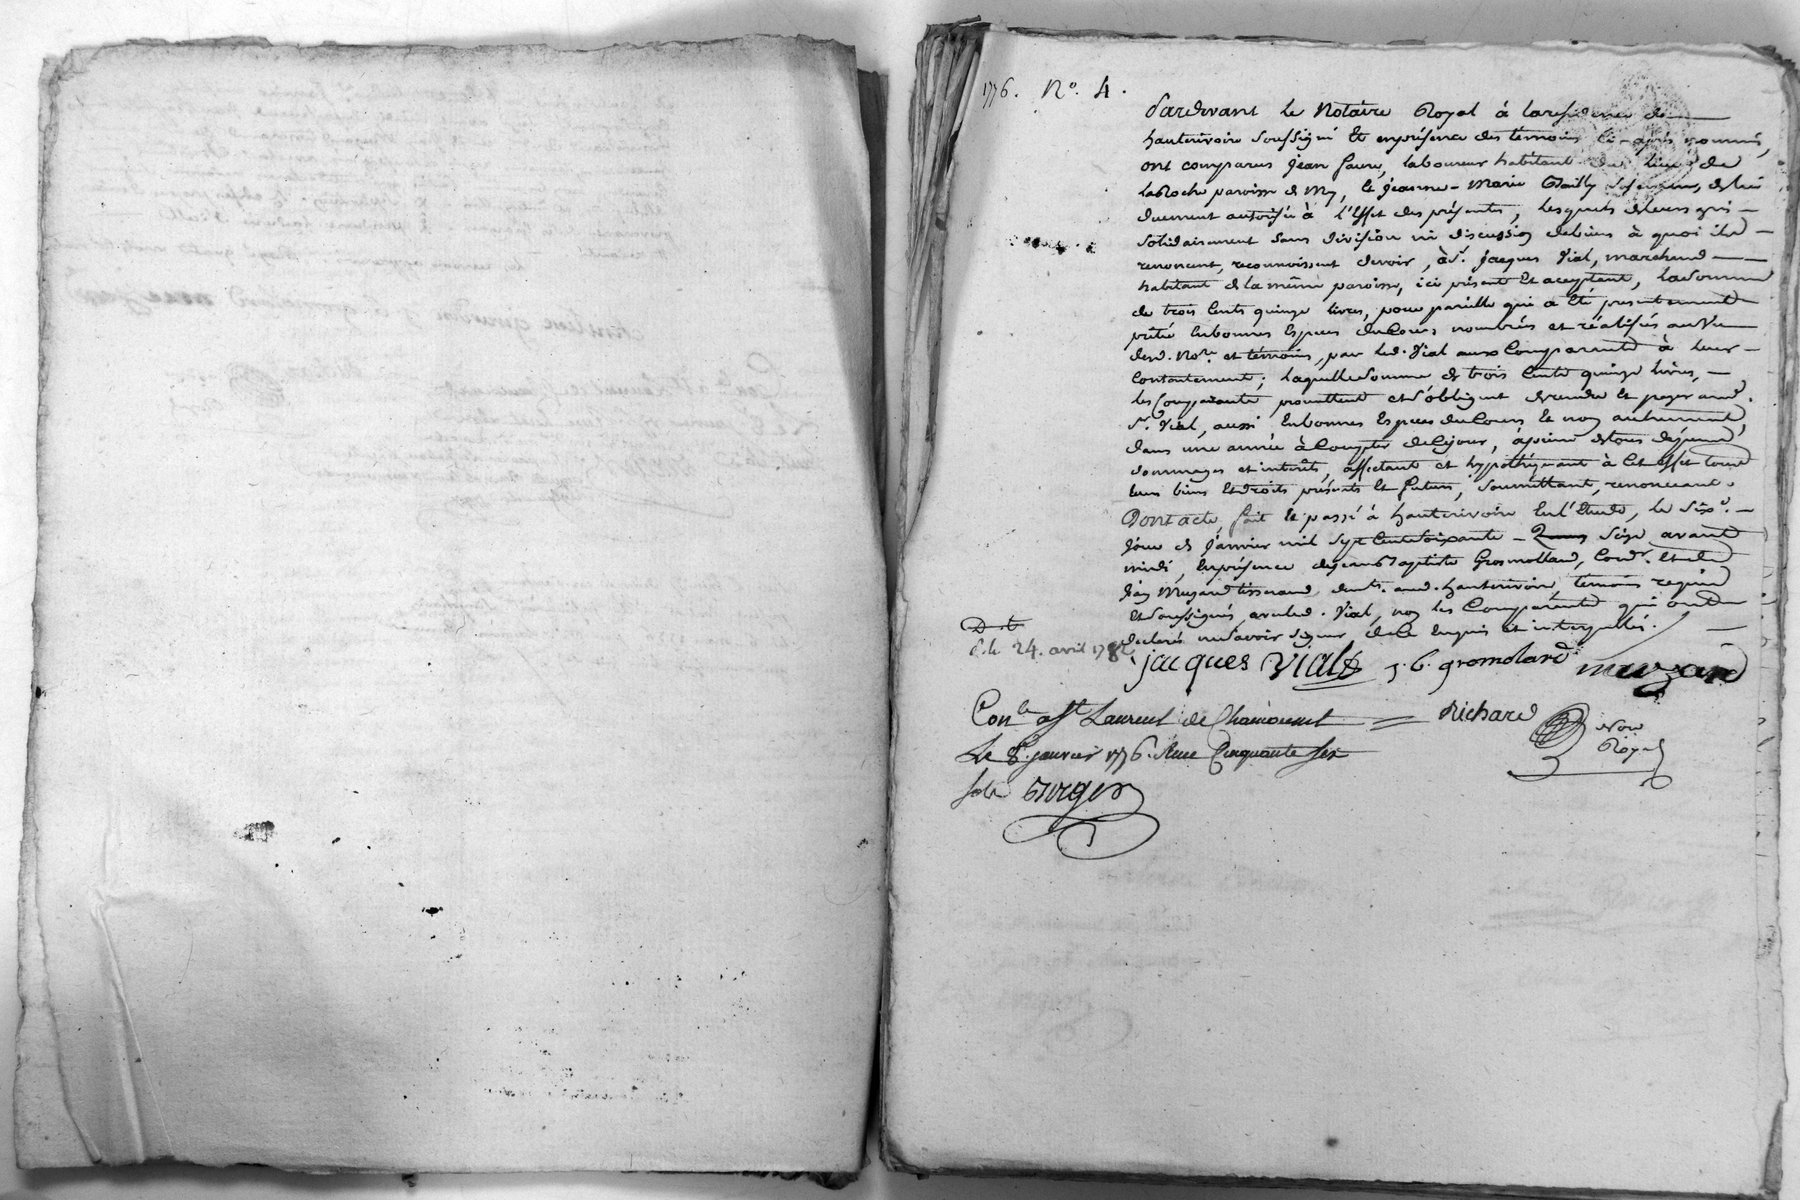 1776. No. 4.
Pardevant le Notaire Royal à la residence de
hauterivoire soussigné Et en présence des témoins ci-après nommés,
ont comparus jean faure, laboureur habitant du lieu de
la Roche paroisse de My, & jeanne-Marie Bailly sa femme, de lui
duement autorisée à l'Effet des présentes, lesquels de leurs gré
solidairement sans division ni discussion de biens à quoi ils
renoncent, reconnoissent devoir, à Sr. jacques Vial, marchand
habitant de la même paroisse, ici présent Et aceptant, la somme
de trois Cents quinze livres, pour pareille qui a Eté presentement
prêtée En bonnes Espèces du Cours, nombrés et réalisés au Vu
dud. Nore. et témoins, par led. Vial aux Comparants à leur
Contentement; laquelle somme de trois Cents quinze livres,
les Comparants promettent et s'obligent de rendre Et payer aud.
Sr. Vial, aussi En bonnes Espèces du Cours Et non autrement,
dans une année à Compter de Ce jour, à peine de tous dépens
dommages et interêts, affectant et hypothéquant à Cet effet tous
leurs biens Et droits présents Et futurs, soumettant, renonceant.
Dont acte, fait Et passé à hauterivoire En l'Etude, le sixe.
jour de janvier mil sept Cent soixante - seize avant
midi, En présence de jean Baptiste Gromollard, Cord. Et de
Muzard tisserand, demts. aud. hauterivoire, témoins requis
Et soussignés, avec led. Vial, non les Comparants qui ont
declaré ne savoir signer de Ce Enquis et interpellés.
24. avril 1782
jacques Vial j. b. gromolard muzard
Conlé. a St Laurent de Chamousset Richard
Le 8. janvier 1776. Reçu Cinquante six Nore
sols Berger Royal